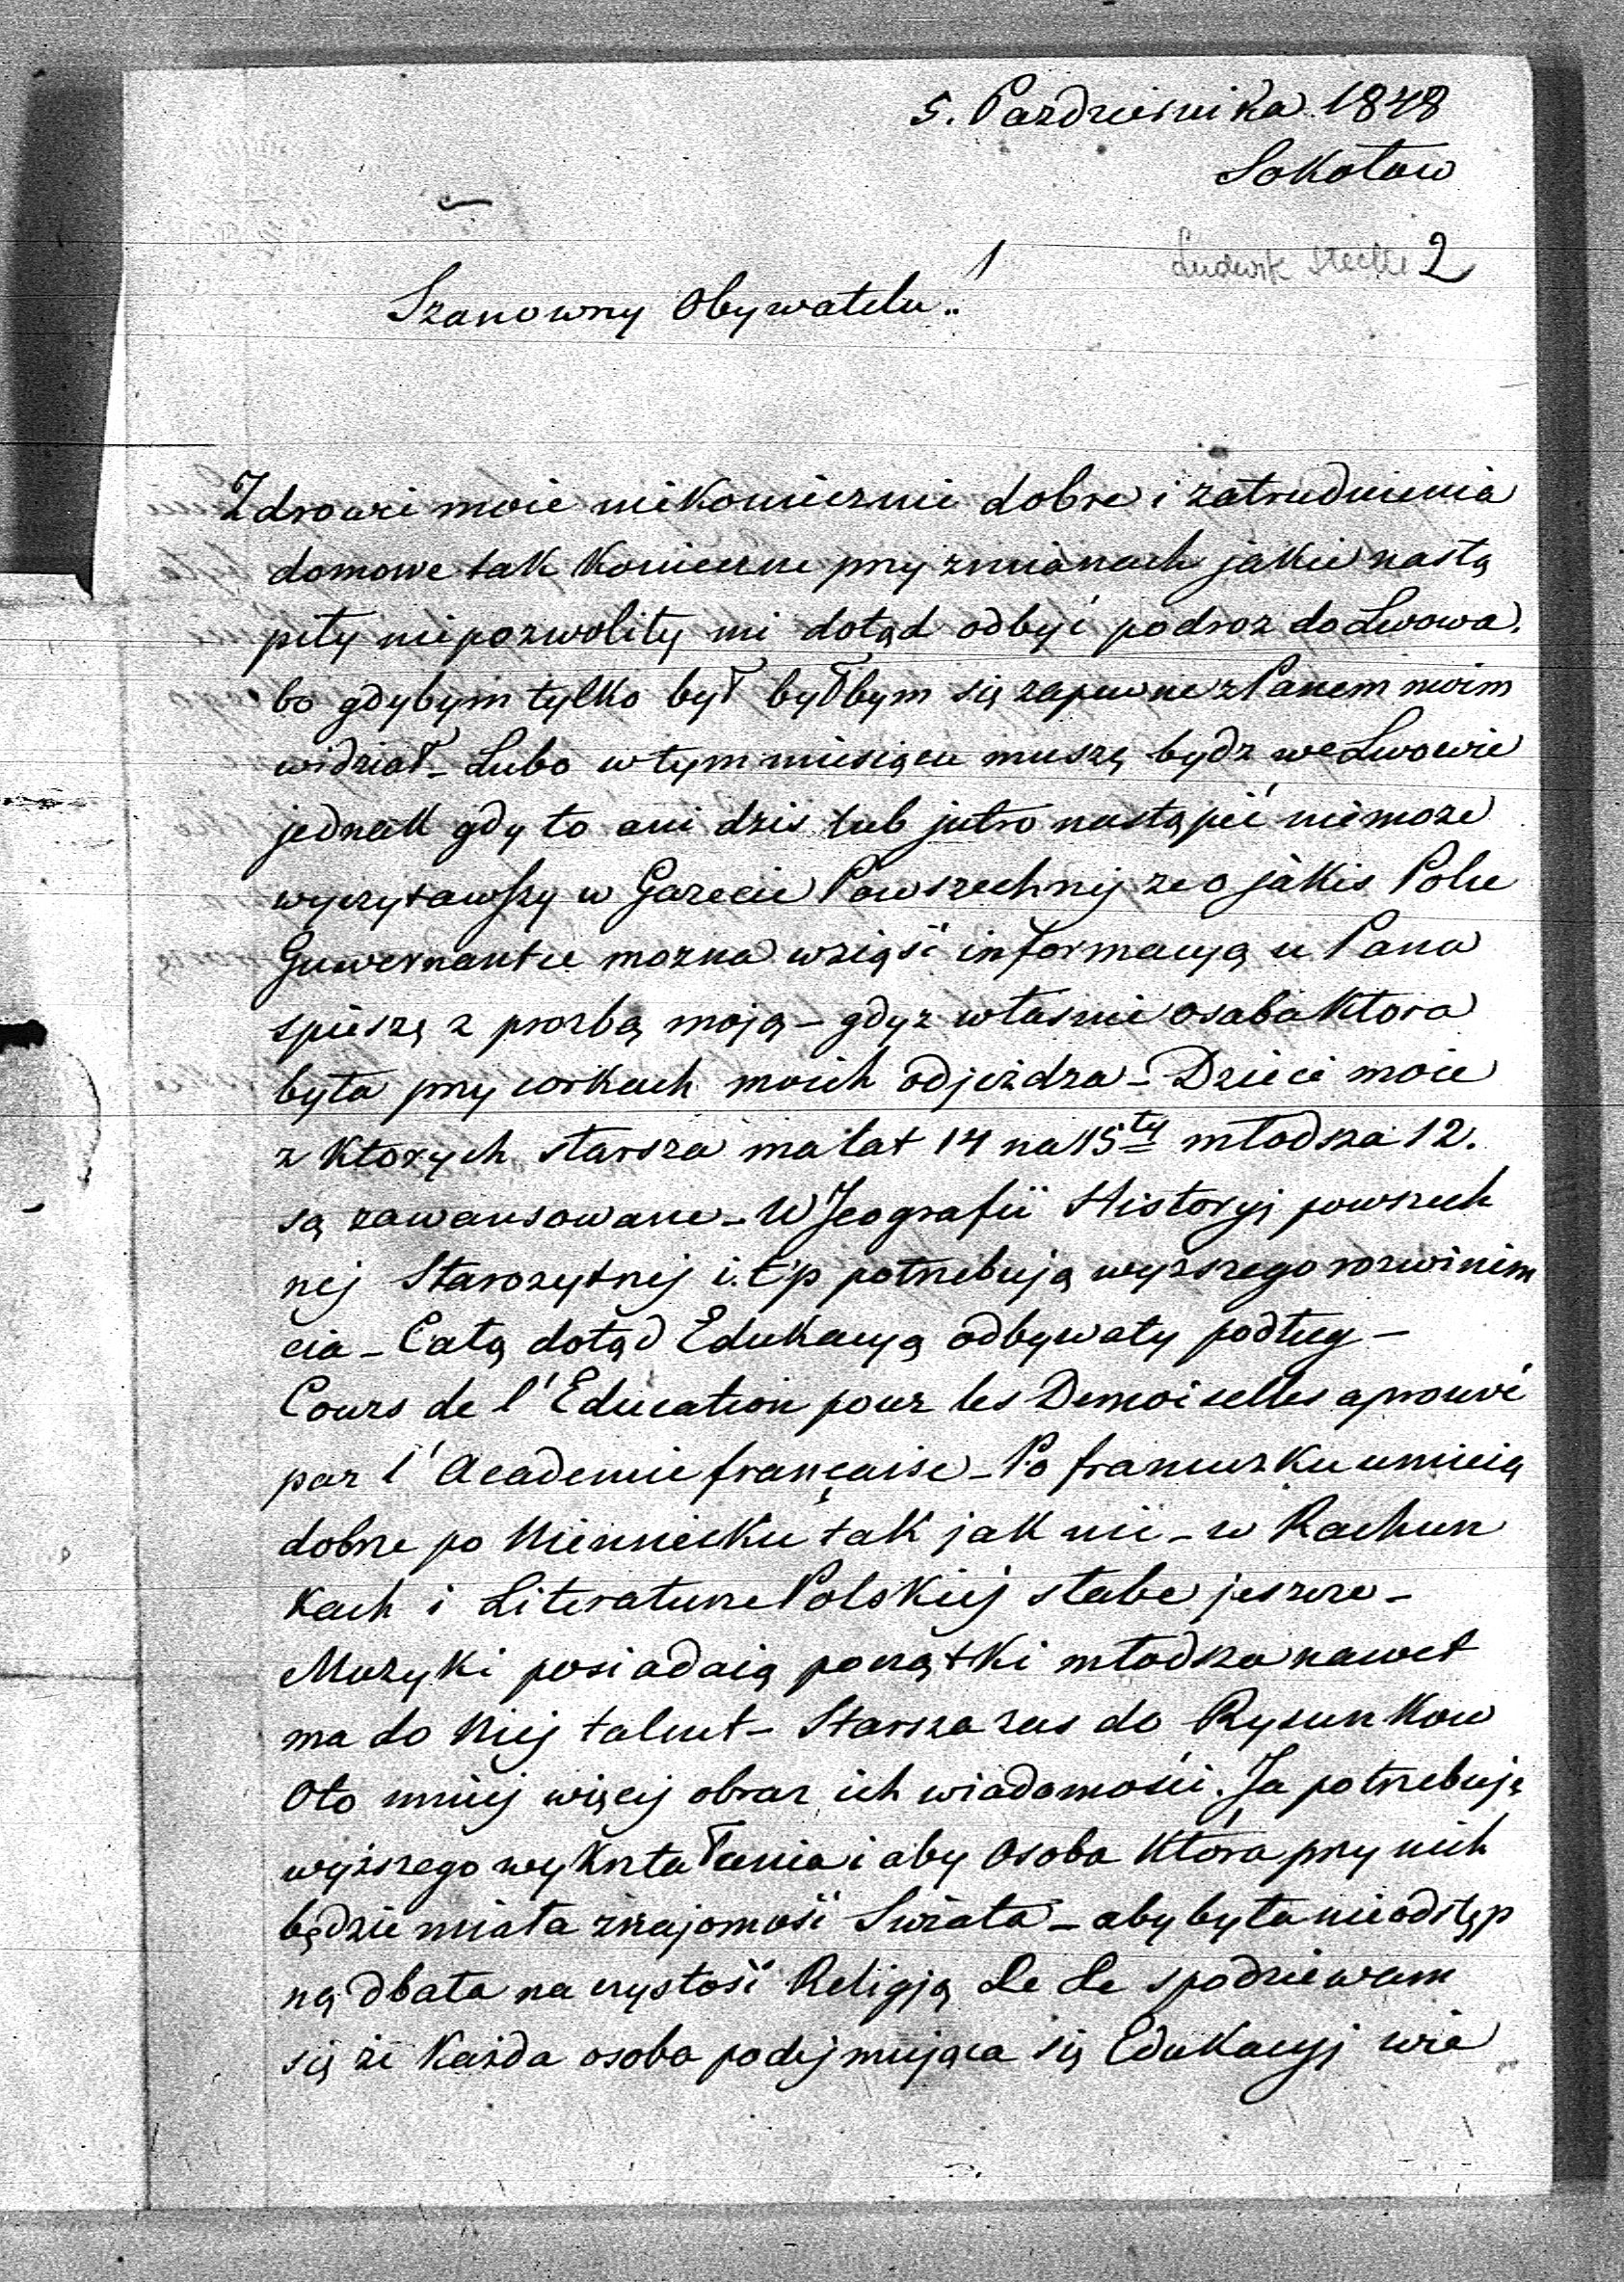 5. Pazdziernika 1848
Sokołow
Ludwik Stecki 2
Szanowny Obywatelu..!
Zdrowie moie niekoniecznie dobre i zatrudnienia
domowe tak konieczne przy zmianach jakie nastą
piły niepozwoliły mi dotąd odbyć podroz do Lwowa.
bo gdybym tylko był byłbym się zapewne z Panem moim
widział_ Lubo w tym miesiącu muszę bydz we Lwowie
jednak gdy to ani dzis lub jutro nastąpić niemoze
wyczytawszy w Gazecie Powszechnej ze o jakis Polce
Guwernantce mozna wziąść informacyą u Pana
spieszę z prozbą moją – gdyz własnie osoba ktora
była przy corkach moich odjeżdza – Dzieci moie
z ktorych starsza ma lat 14 na 15ty młodsza 12.
są zawansowane – W Jeografii Historyi powszech
nej Starozytnej i.t.p potrzebują wyzszego rozwinien
cia – Całą dotąd Edukacyą odbywały podług –
Cours de l'Education pour les Demoiselles aprouvé
par l'Academie française – Po francuzku umieią
dobrze po Niemiecku tak jak nie – w Rachun
kach i Literaturze Polskiej słabe jeszcze –
Muzyki posiadaią początki młodsza nawet
ma do niej talent – Starsza zas do Rysunkow
Oto mniej więcej obraz ich wiadomości. Ja potrzebuję
wyższego wykształcenia i aby osoba która przy nich
będzie miała znajomość Swiata – aby była nieodstęp
ną dbała na czystość Religją &c &c spodziewam
się że każda osoba podejmująca się Edukacyj wie